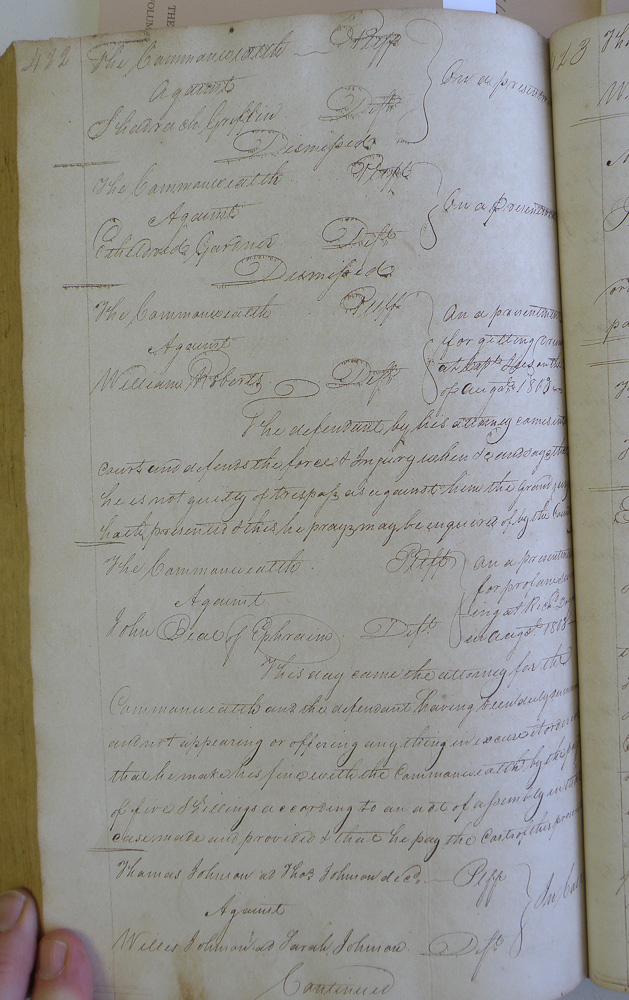 THE
VOLUME
422
The Commonwealth Pltff
Against
Shadrach Griffin Deft
On a presentm
Dismissed
The Commonwealth Pltff
Against
Etheldred Gardner Deft
On a presentm
Dismissed
The Commonwealth Pltff
Against
William Roberts Deft
On a presentm
for getting
of Augst 1813
The defendant by his attorney comes into
court and defends the force & Injury when &c and says that
he is not guilty of trespass as against him the Grand jury
hath presented & this he prays may be inquired of by the
The Commonwealth Pltff
Against
John Beal of Ephraim Deft
On a presentm
for profane
in Augst 1813
This day came the attorney for the
Commonwealth and the defendant having been duly
and not appearing or offering anything in excuse it
that he make his fine with the Commonwealth by the
of five Shillings according to an act of assembly in
case made and provided & that he pay the Costs of this
Thomas Johnson ad Thos Johnson decd Pltff
Against
Willes Johnson ad Sarah Johnson Deft
In
Continued